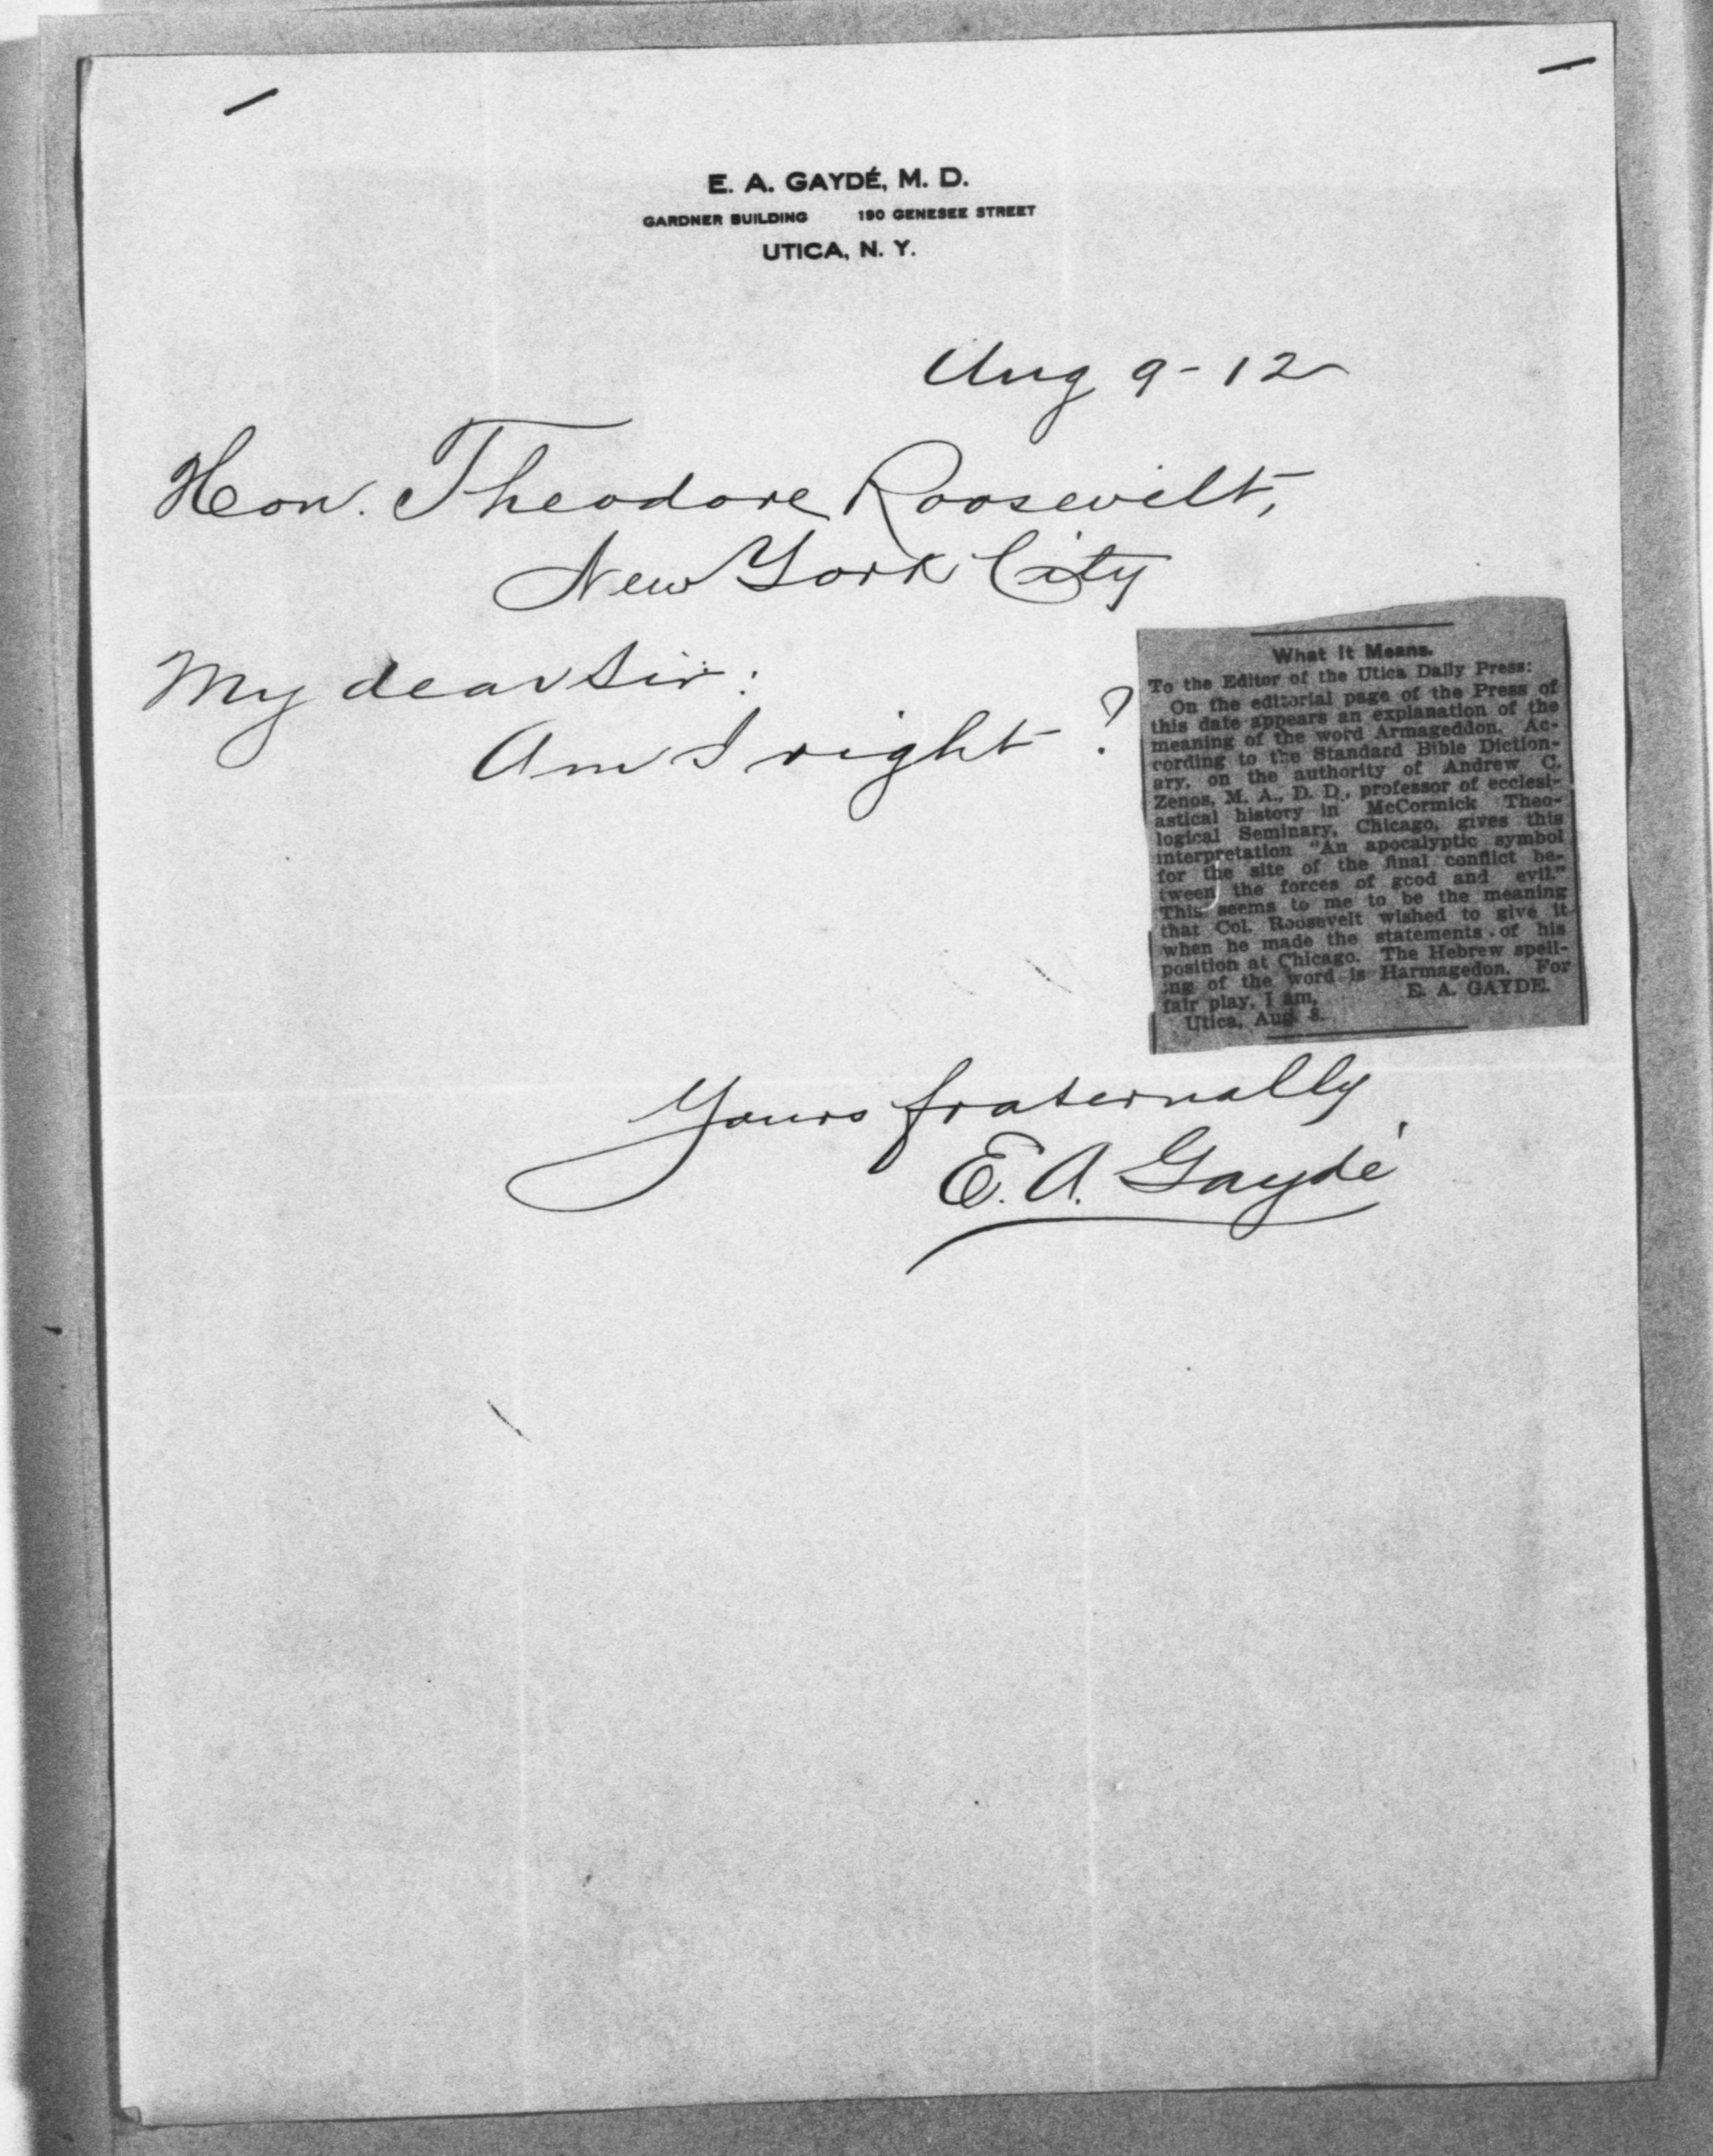 E. A. GAYDÉ, M. D.
GARDNER BUILDING 190 GENESEE STREET
UTICA, N. Y.
Aug 9-12
Hon. Theodore Roosevelt,
New York City
My dear Sir:
Am I right ?
What It Means.
To the Editor of the Utica Daily Press:
On the editorial page of the Press of
this date appears an explanation of the
meaning of the word Armageddon. Ac-
cording to the Standard Bible Diction-
ary, on the authority of Andrew C.
Zenos, M. A., D. D., professor of ecclesi-
astical history in McCormick Theo-
logical Seminary, Chicago, gives this
interpretation "An apocalyptic symbol
for the site of the final conflict be-
tween the forces of good and evil."
This seems to me to be the meaning
that Col. Roosevelt wished to give it
when he made the statements of his
position at Chicago. The Hebrew spell-
ing of the word is Harmagedon. For
fair play, I am,
E. A. GAYDE.
Utica, Aug. 8.
Yours fraternally
E. A. Gaydé